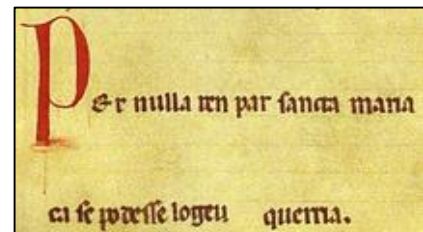 Per nulla ren par sancta maria
ca se podesse logeu querria.